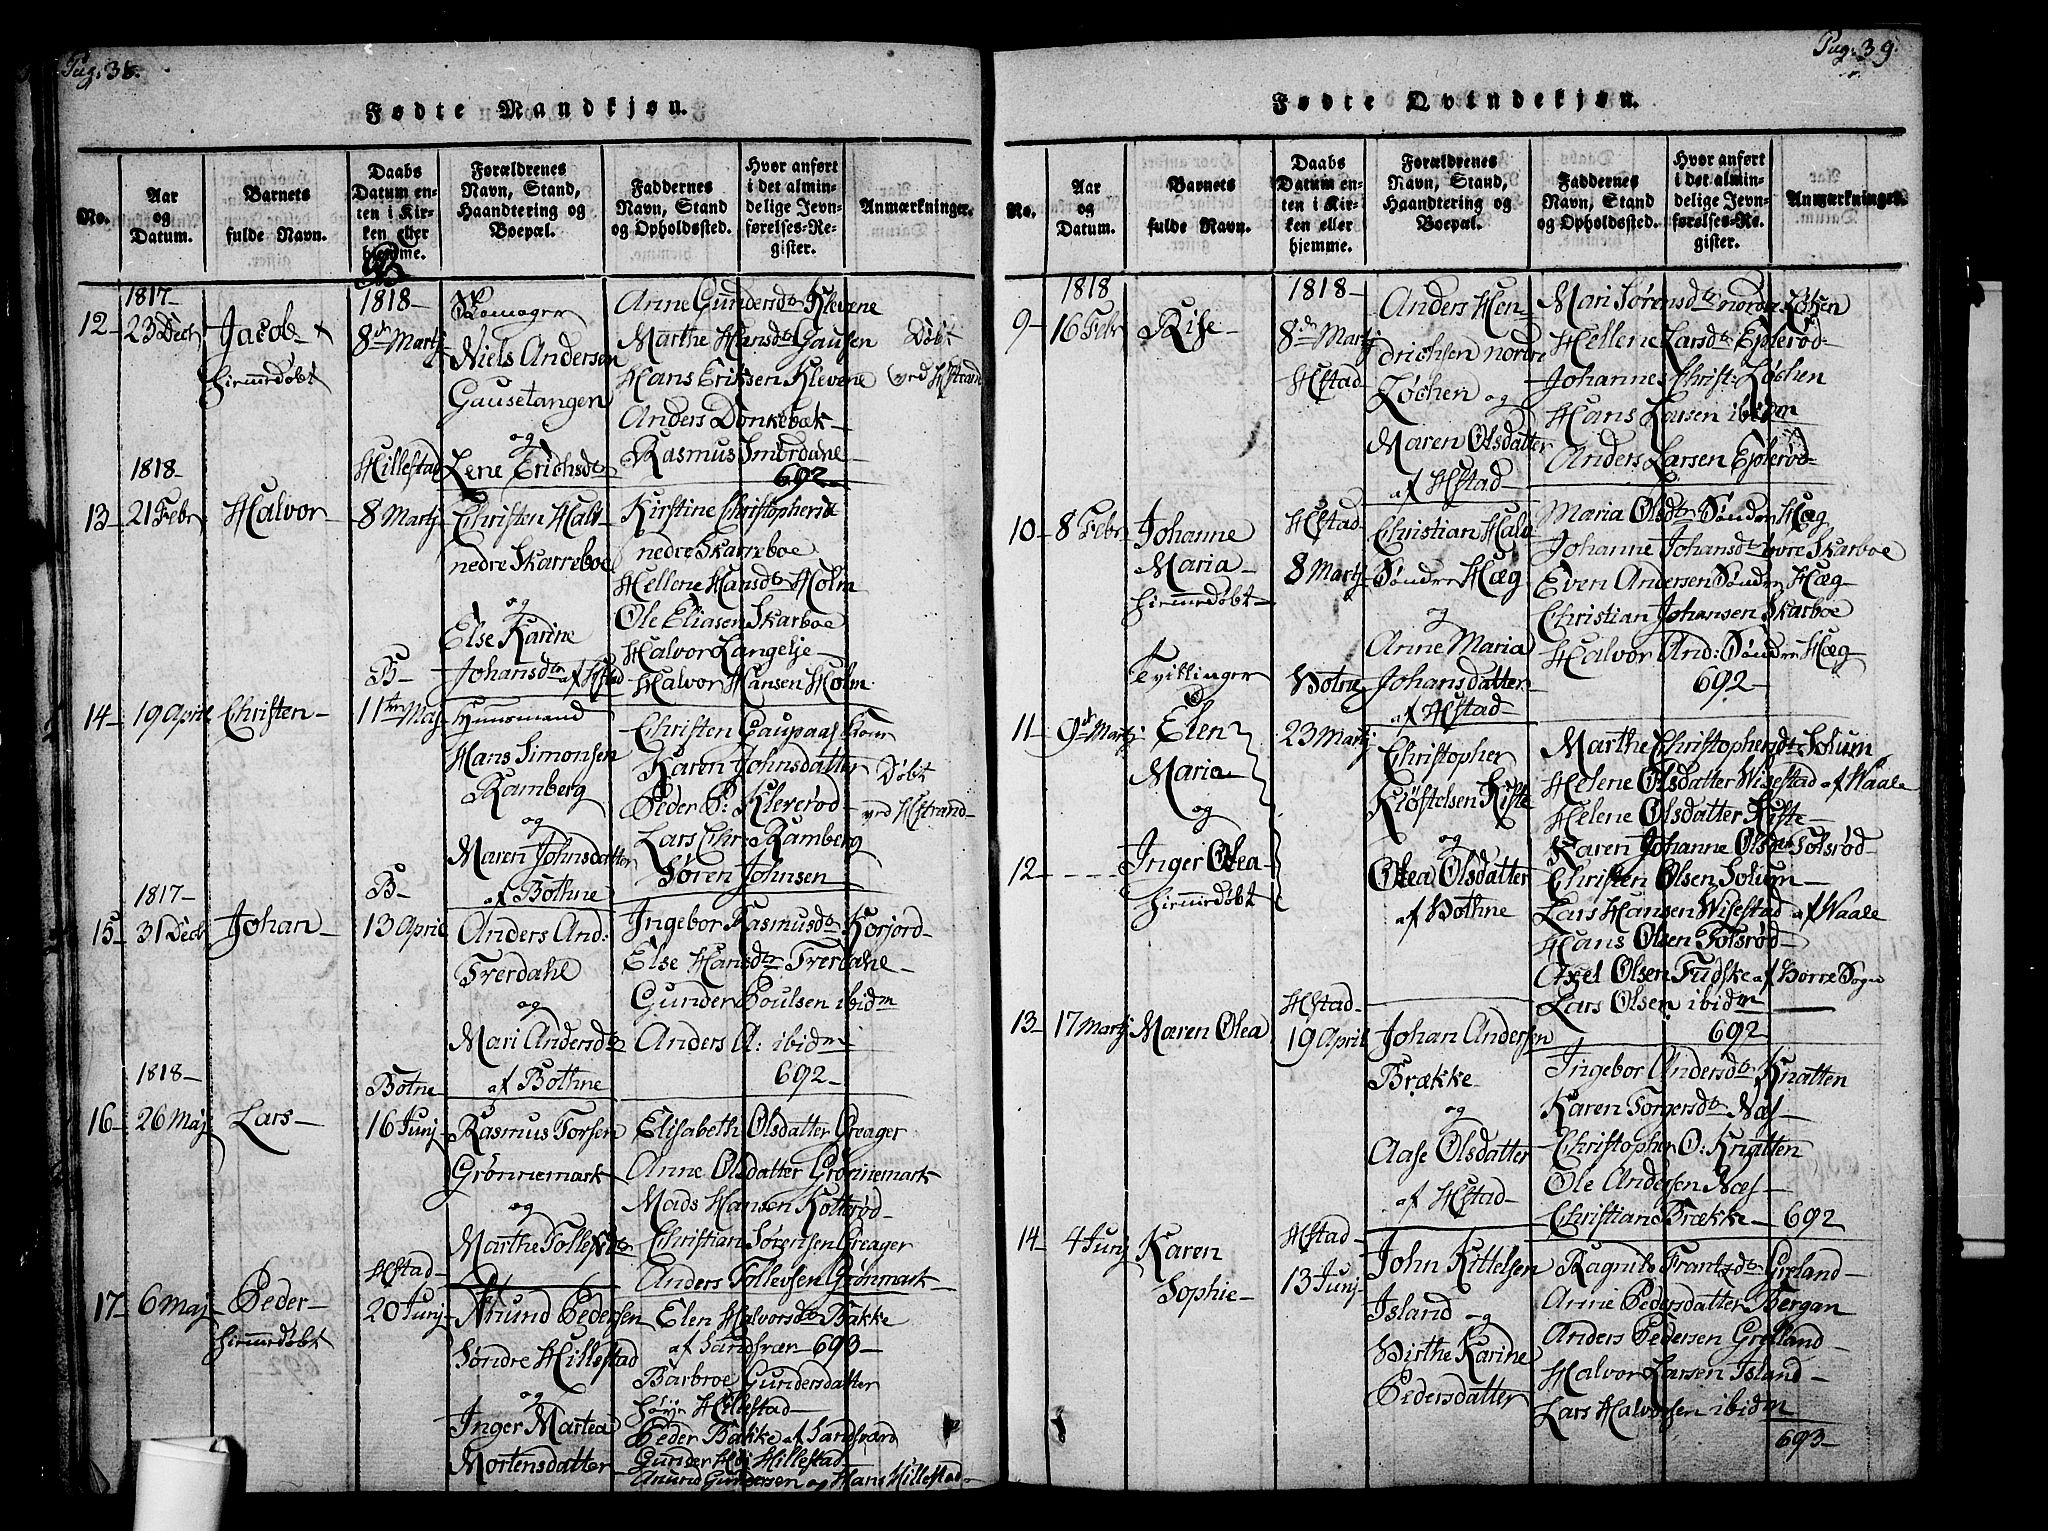 Pag. 38.
Fødte Mandkjøn.
No.
Aar og Datum.
Barnets fulde Navn.
Daabs Datum enten i Kirken eller hjemme.
Forældrenes Navn, Stand, Haandtering og Boepæl.
Faddernes Navn, Stand og Opholdssted.
Hvor anført i det almindelige Jevnførelses-Register.
Anmærkninger.
12-
1817-
23 Decbr
Jacob
hiemedøbt
1818-
8de Martj
Hillestad
Niels Andersen
Gausetangen
og
Lene Erichsdtr
Anne Gundersdtr Klevene
Marthe Hansdtr Gausen
Hans Eriksen Klevene
Anders Donkebæk-
Rasmus Smørdane
692-
Døbt
ved Hstrand
13-
1818-
21 Febr
Halvor-
8 Martj
Christen Halv
nedre Skarreboe
og
Else Karine
Johansdtr af Hstad
Kirstine Christophersd
nedre Skarreboe
Hellene Hansdtr Holm
Ole Eliasen Skarboe
Halvor Langelje-
Halvor Hansen Holm
14-
19 April
Christen-
B-
11te Maj
Huusmand
Hans Simonsen
Ramberg
og
Maren Johnsdatter
af Bothne
Christen Gaupaas
Karen Johnsdatter
Peder P: Kleverød-
Lars Chr: Ramberg
Søren Johnsen
Døbt
ved Hstrand-
15-
1817-
31 Decb
Johan-
B-
13 April
Anders And:
Trerdahl
og
Mari Andersdtr
af Bothne
Ingebor Rasmusdtr Korjord-
Else Hansdtr Trerdahl-
Gunder Poulsen ibidm
Anders A: ibidm
692-
16-
1818-
26 Maj
Lars-
Botne
16 Junj
Rasmus Torsen
Grønnemark
og
Marthe Tollefsdtr
Elisabeth Olsdatter Greager
Anne Olsdatter Grønnemark
Mads Hansen Kolterød-
Christian Sørensen Greager
Anders Tollevsen Grønmark-
17-
6 Maj
Peder-
hiemedøbt
Hstad-
20 Junj
Anund Pedersen
Søndre Hillestad
og
Inger Martea
Mortensdatter
Elen Halvorsdtr Bakke
af Sandsvær- 693-
Barbroe Gundersdatter
Hillestad-
Peder Bakke af Sandsværd
Gunder Hillestad-
Anund Gundersen og Hans Hillestad-
Pag. 39.
Fødte Qvindekjøn.
No.
Aar og Datum.
Barnets fulde Navn.
Daabs Datum enten i Kirken eller hjemme.
Forældrenes Navn, Stand, Haandtering og Boepæl.
Faddernes Navn, Stand og Opholdssted.
Hvor anført i det almindelige Jevnførelses-Register.
Anmærkninger.
9-
1818
16 Febr
Rise-
1818-
8de Martj
Hstad
Anders Hen
drichsen nordre
Løchen og
Maren Olsdatter
af Hstad-
Mari Sørensdtr nordre Løken
Hellene Larsdtr Eplerød-
Johannes Christ: Løchen
Hans Larsen ibidm
Anders Larsen Eplerød-
10-
8 Febr
Johanne
Maria-
hiemedøbt-
Hstad-
8 Martj
Christian Hald
Søndre Hæg
og
Anne Maria
Johansdatter
af Hstad-
Maria Olsdtr Søndre Hæg
Johanne Johansdtr øvre Skarboe
Even Andersen Søndre Hæg-
Christian Johansen Skarboe
Halvor And: Søndre Hæg-
692-
Tvillinger
11-
9de Martj
Elen
Maria
og
12-
Inger Olea-
hiemedøbt
Botne
23 Martj
Christopher
Kløftelsen Kifte
og
Olea Olsdatter
af Bothne
Marthe Christophersdtr Solum
Helene Olsdatter Wisestad af Waale
Helene Olsdatter Kifte-
Karen Johanne Olsdtr Tolsrød-
Christen Olsen Solum-
Lars Hansen Wisestad af Waale
Hans Olsen Tolsrød-
Axel Olsen Fudske af Borre Sogn
Lars Olsen ibidm
692-
13-
17 Martj
Maren Olea
Hstad-
19 April
Johan Andersen
Brække-
og
Aase Olsdatter
af Hstad-
Ingebor Andersdtr Knatten
Karen Torgersdtr Næs-
Christopher O: Knatten
Ole Andersen Næs-
Christian Brække- 692-
14-
4 Junj
Karen
Sophie-
Hstad-
13 Junj
John Kittelsen
Island og
Birthe Karine
Pedersdatter
Ragnild Frantsdtr Greland-
Anne Pedersdatter Bergan
Anders Pedersen Grelland-
Halvor Larsen Island-
Lars Halvorsen ibidm
693-